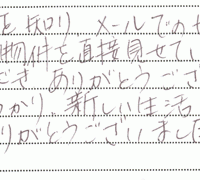 を知り、メールでのや
物件を直接見せてい
でき ありがとうござ
つかり、新しい生活
りがとうございました